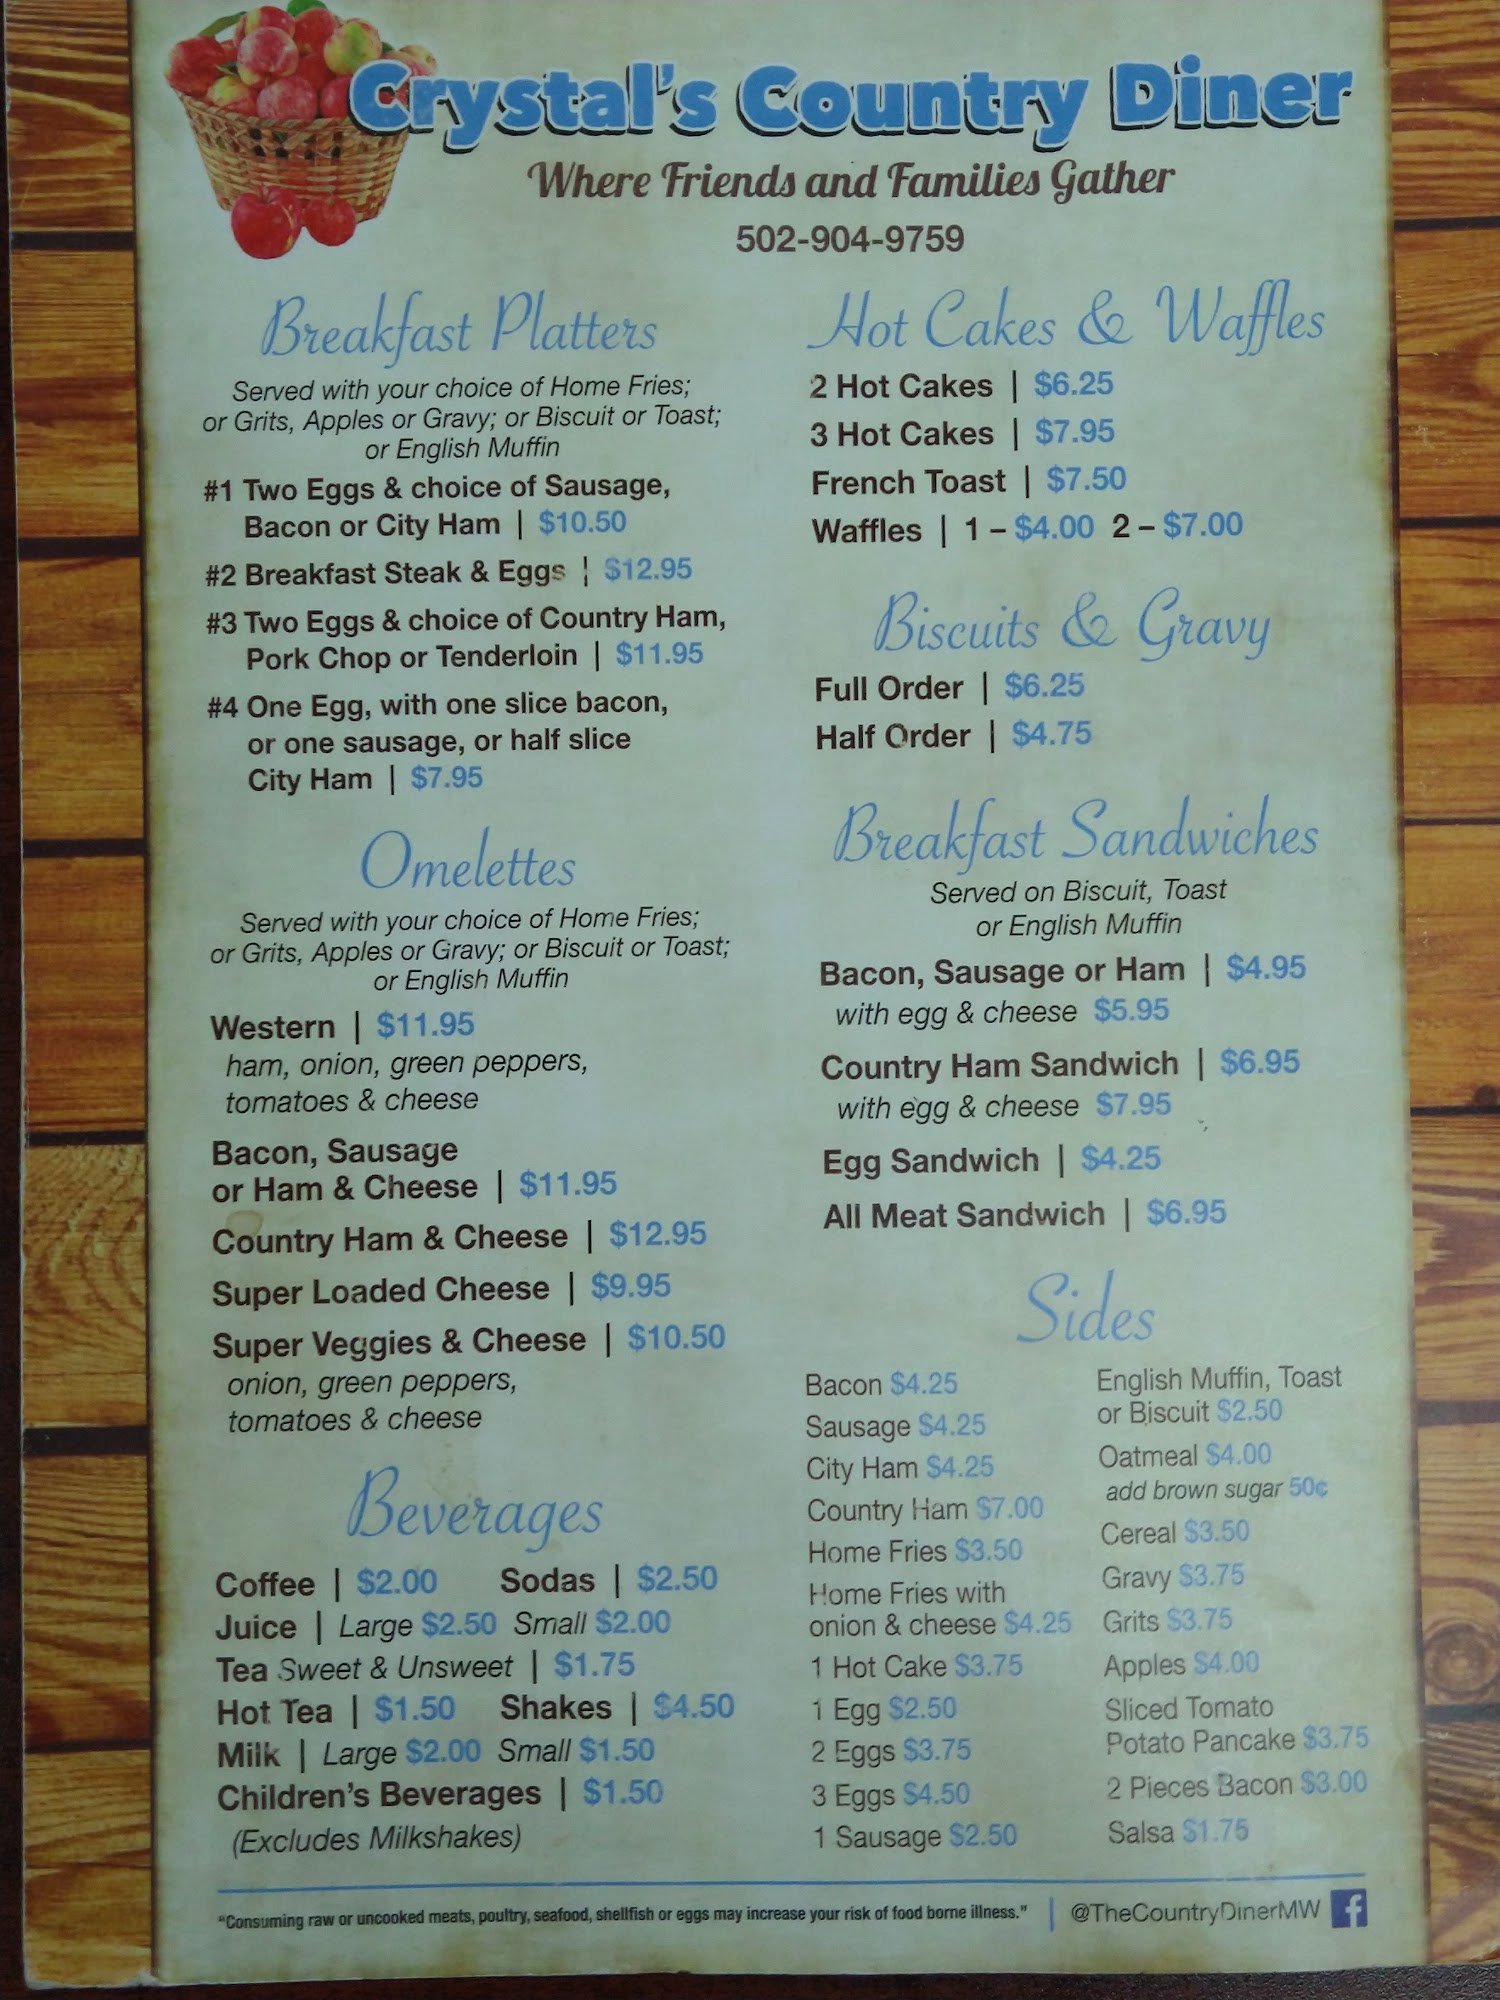 Crystal's Country Diner
Where Friends and Families Gather
502-904-9759
Breakfast Platters
Served with your choice of Home Fries;
or Grits, Apples or Gravy; or Biscuit or Toast;
or English Muffin
#1 Two Eggs & choice of Sausage,
Bacon or City Ham | $10.50
#2 Breakfast Steak & Eggs | $12.95
#3 Two Eggs & choice of Country Ham,
Pork Chop or Tenderloin | $11.95
#4 One Egg, with one slice bacon,
or one sausage, or half slice
City Ham | $7.95
Omelettes
Served with your choice of Home Fries;
or Grits, Apples or Gravy; or Biscuit or Toast;
or English Muffin
Western | $11.95
ham, onion, green peppers,
tomatoes & cheese
Bacon, Sausage
or Ham & Cheese | $11.95
Country Ham & Cheese | $12.95
Super Loaded Cheese | $9.95
Super Veggies & Cheese | $10.50
onion, green peppers,
tomatoes & cheese
Beverages
Coffee | $2.00 Sodas | $2.50
Juice | Large $2.50 Small $2.00
Tea Sweet & Unsweet | $1.75
Hot Tea | $1.50 Shakes | $4.50
Milk | Large $2.00 Small $1.50
Children's Beverages | $1.50
(Excludes Milkshakes)
Hot Cakes & Waffles
2 Hot Cakes | $6.25
3 Hot Cakes | $7.95
French Toast | $7.50
Waffles | 1 – $4.00 2 – $7.00
Biscuits & Gravy
Full Order | $6.25
Half Order | $4.75
Breakfast Sandwiches
Served on Biscuit, Toast
or English Muffin
Bacon, Sausage or Ham | $4.95
with egg & cheese $5.95
Country Ham Sandwich | $6.95
with egg & cheese $7.95
Egg Sandwich | $4.25
All Meat Sandwich | $6.95
Sides
Bacon $4.25
Sausage $4.25
City Ham $4.25
Country Ham $7.00
Home Fries $3.50
Home Fries with
onion & cheese $4.25
1 Hot Cake $3.75
1 Egg $2.50
2 Eggs $3.75
3 Eggs $4.50
1 Sausage $2.50
English Muffin, Toast
or Biscuit $2.50
Oatmeal $4.00
add brown sugar 50¢
Cereal $3.50
Gravy $3.75
Grits $3.75
Apples $4.00
Sliced Tomato
Potato Pancake $3.75
2 Pieces Bacon $3.00
Salsa $1.75
"Consuming raw or uncooked meats, poultry, seafood, shellfish or eggs may increase your risk of food borne illness." | @TheCountryDinerMW f